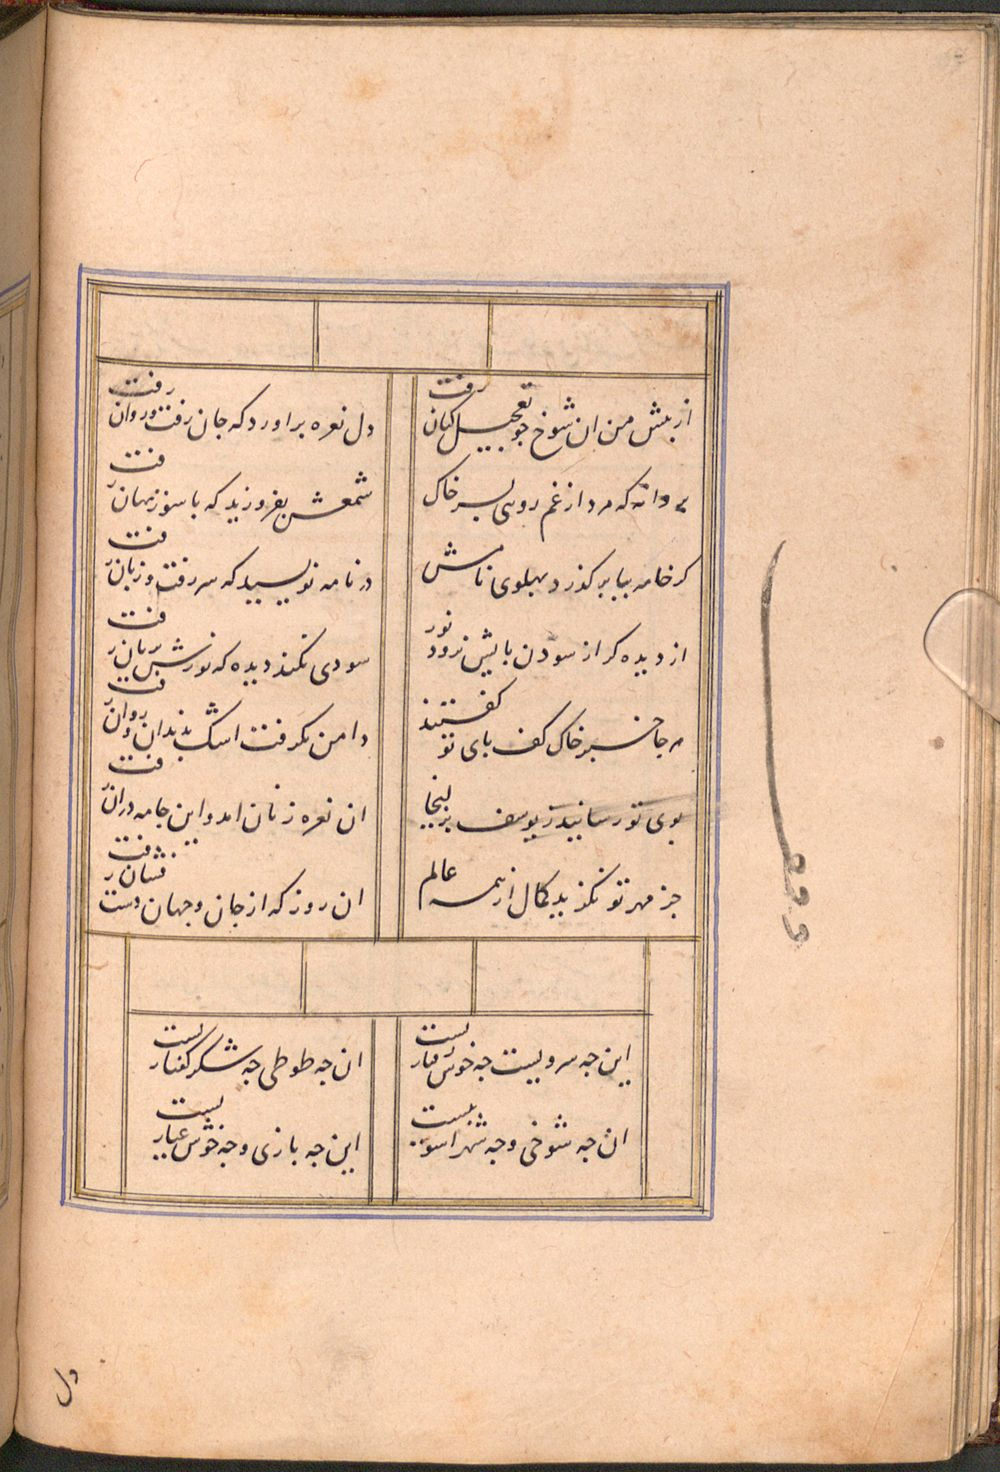 از پیش من ان شوخ چو تعجیل کنان رفت
دل نعره براورد که جان رفت و روان رفت
پروانه که مرد از غم روی بسر خاک
شمعش بفروزید که با سوز نهان رفت
کر خامه بپا بر کذرد پهلوی نامش
در نامه نویسید که سر رفت و زبان رفت
از دیده کر از سودن پایش نرود نور
سودی نکند دیده که نورش بزیان رفت
هر جا خبر خاک کف پای تو کفتند
دامن نکرفت اشک بدندان و روان رفت
بوی تو رسانیدز یوسف بزلیخا
ان نعره زنان امد و این جامه دران رفت
جز مهر تو نکزید کمال از همه عالم
ان روز که از جان و جهان دست فشان رفت
این چه سرویست چه خوش رفتاریست
ان چه طوطی چه شکر کفتاریست
ان چه شوخی و چه شهراشوبیست
این چه بازی و چه خوش عیاریست
دل